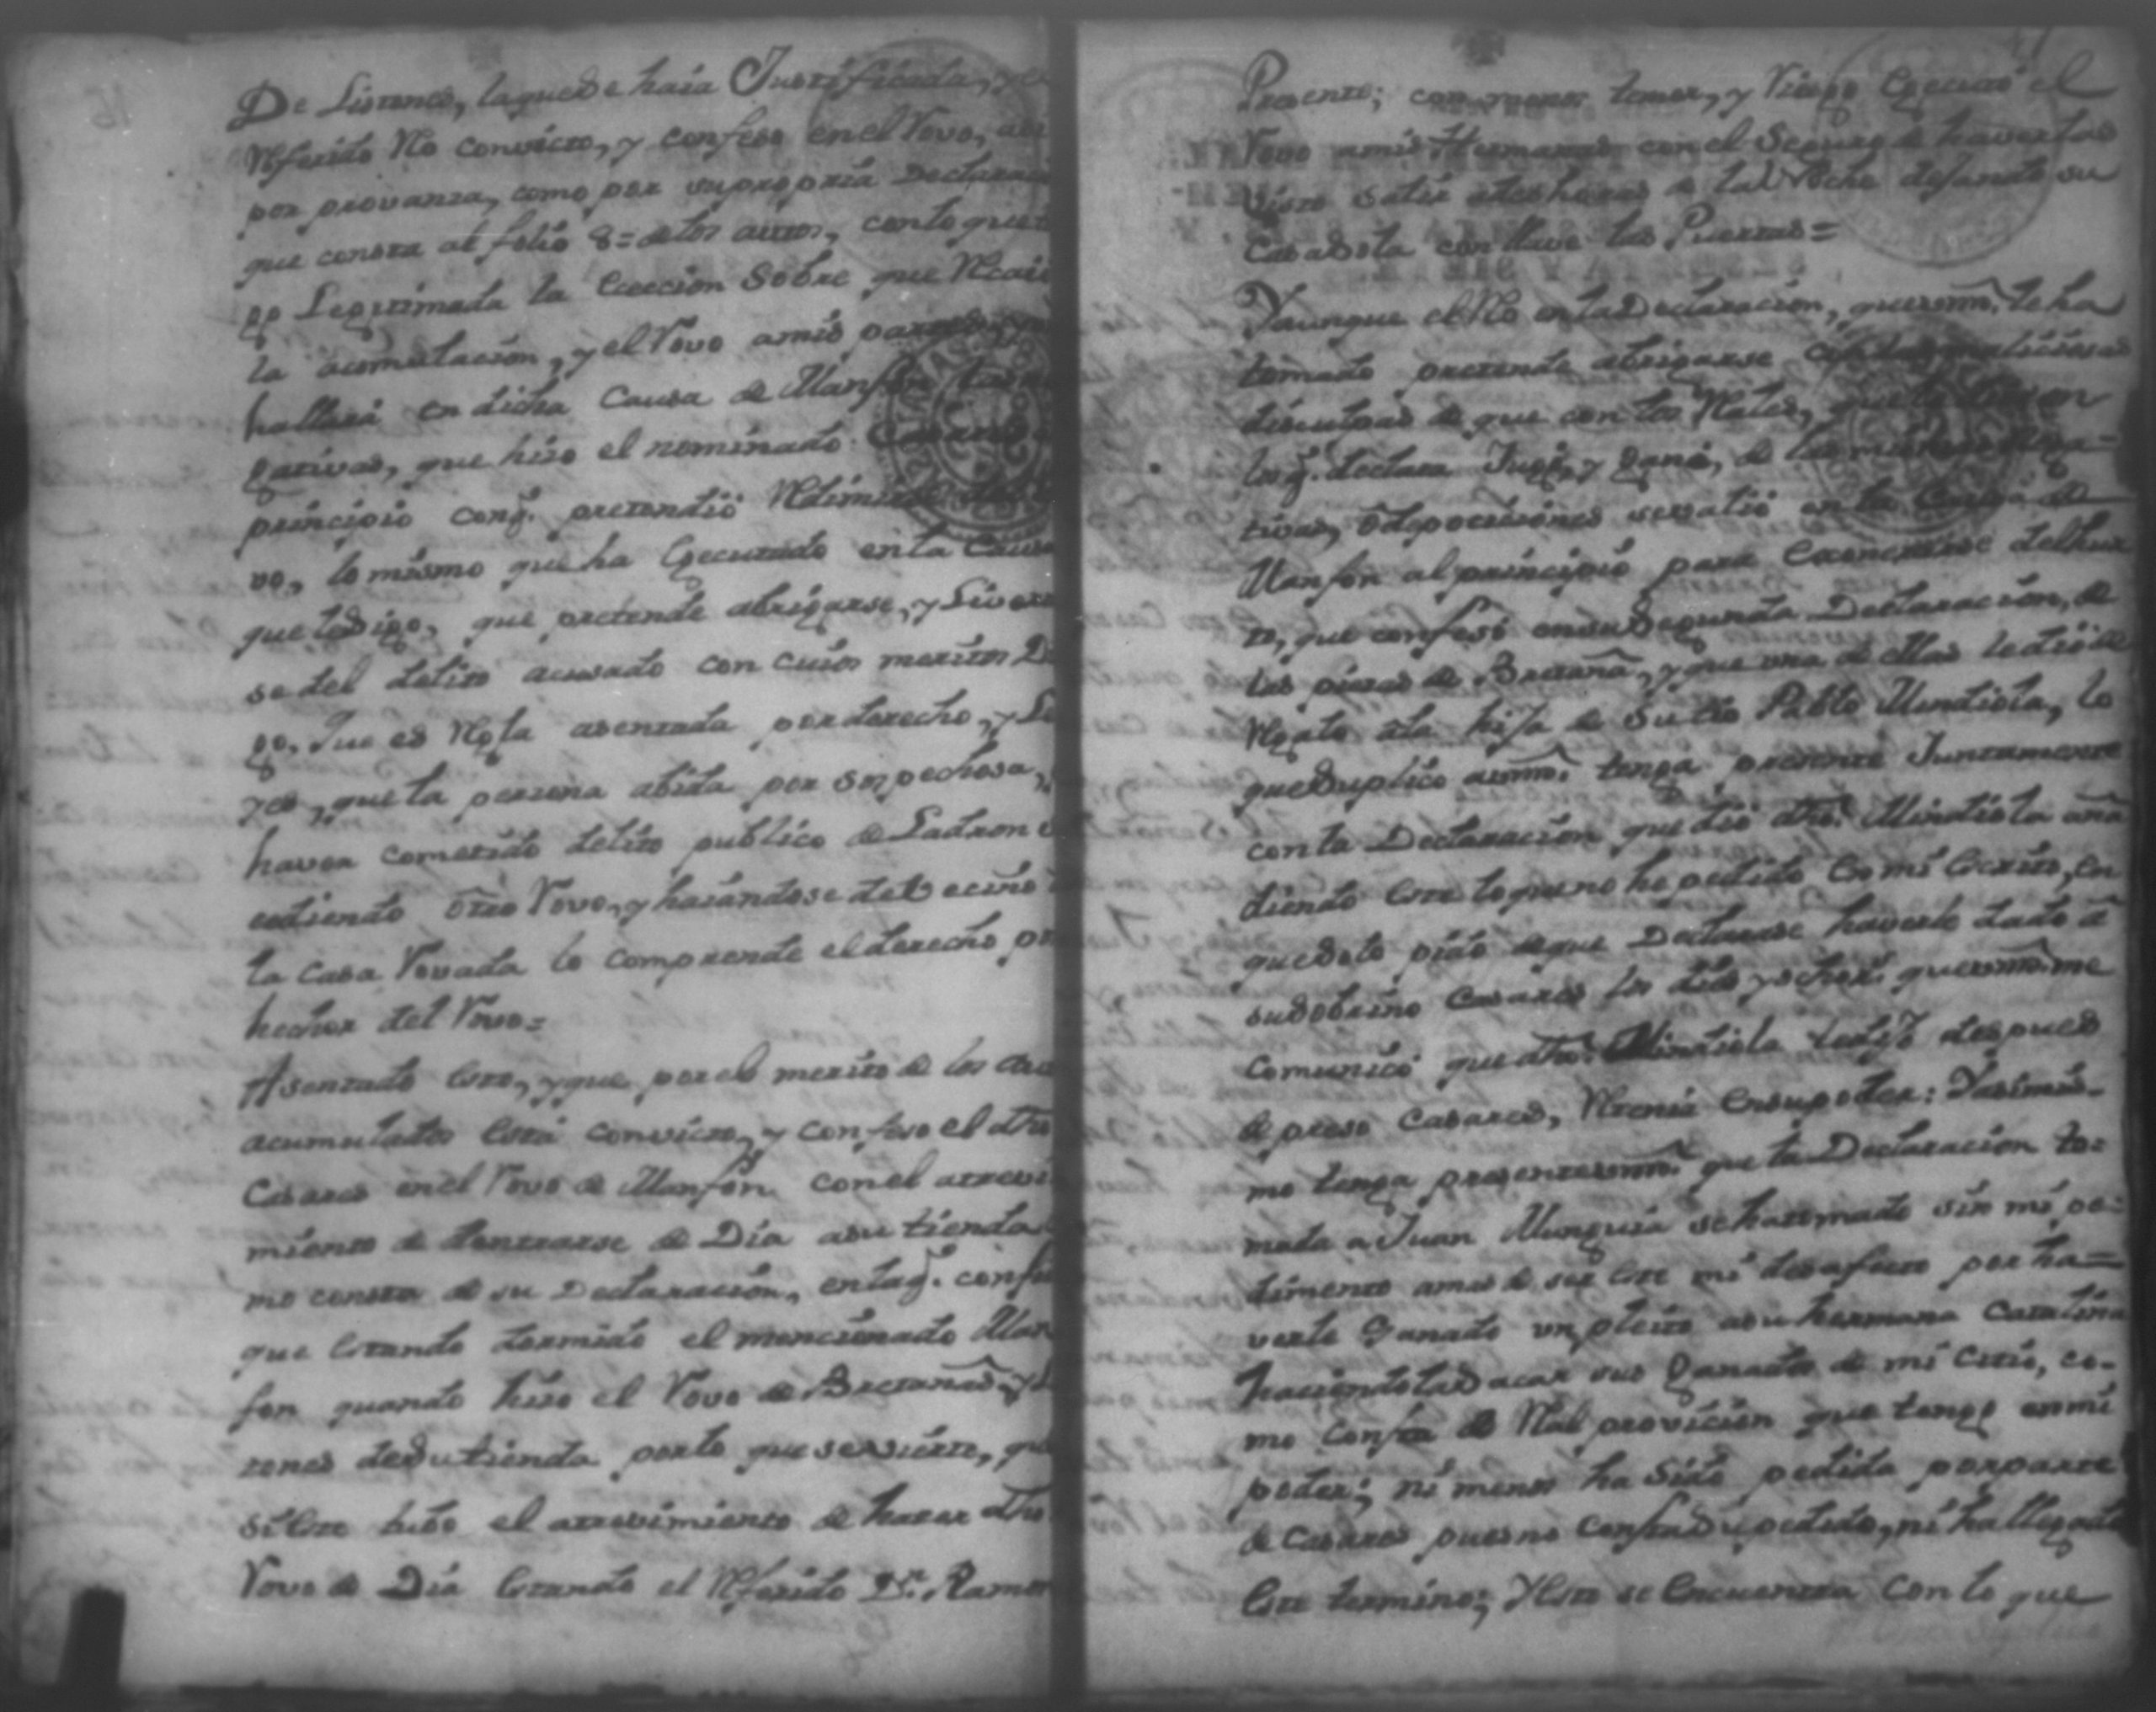 De Listones, laqueseharía Justificada, y el
Referido Reo convicto, y confeso en el Rovo, asi
por provanza, como por supropria Declaraci
que consta al folio 8= delos autos, conlo que
go Legitimada la Eccecion Sobre que Recaio
la acomulacion, y el Rovo amis
hallará en dicha Causa de Manfon
gativas, que hiso el nominado Casares
principio conq.e pretendió Redimirse
vo, lo mismo que ha Egecutado enla Causa
que lesigo, que pretende abrigarse, y Livertar
se del delito acusado con cuios meritos Di
go, Que es Regla asentada porderecho, y
yes, quela persona abida por sospechosa,
haver cometido delito publico de Ladron
cediendo otro Rovo, y hasiendose delvecino
la Casa Rovada lo comprende elderecho por
hechor del Rovo=
Asentado esto, y que porel merito de los autos
acumulados está convicto, y confeso el dho
Casares enel Rovo de Manfon conel atrevi
miento de dentrarse de Dia asu tienda
mo consta de su Declaracion, enlaq.e confiesa
que estando dormido el mencionado Man
fon quando hiso el Rovo de Bretañas, y Lis
tones desutienda porlo que seasierte, que
siese huso el atrevimiento de haser dho
Rovo de Dia estando el Referido D.n Ramon
Presente; con menos temor, y Riesgo Egecutó el
Rovo amis Hermanas con el Seguro de haverlas
visto salir adeshoras de la Noche dejando su
Casasola conllave las Puertas=
Yaunque el Reo enlaDeclaracion, quevmd. le ha
tomado pretende abrigarse conlas maliciosas
disculpas de que con los Reales,
los q.e declara Jugó, y ganó, de las mismas nega=
tivas, ódeposiciones sevalió en la Causa de
Manfon al principio para Esonerarse delhur
to, que confesó ensuSegunda Declaracion, de
las piesas de Bretaña, y que una de ellas ledió de
Regalo ala hija de Su tio Pablo Mindiola, lo
queSuplico avmd. tenga presente Juntamente
conla Declaracion que dió dho. Mindiola aña
diendo este loqueno he pedido Enmi Escrito, en
queSolo pido deque Declarase haverle dado á
susobrino Casares los dies yocho r.s quevmd. me
comunicó quedho. Mindiola ledijo despues
de preso Casares, Retenía Ensupoder: Yasimis-
mo tenga presentevmd. que la Declaracion to=
mada a Juan Munguia sehatomado sin mi pe=
dimento amas de ser este mi desafecto por ha=
verle Ganado un pleito asu hermana Catalina
haciendolaSacar sus Ganados de mi citio, co-
mo Consta de Real provicion que tengo enmi
poder; ni menos ha Sido pedida porparte
de Casares pues no Consta Supedido, ni hallegado
este termino; Yesto se Encuentra Con lo que